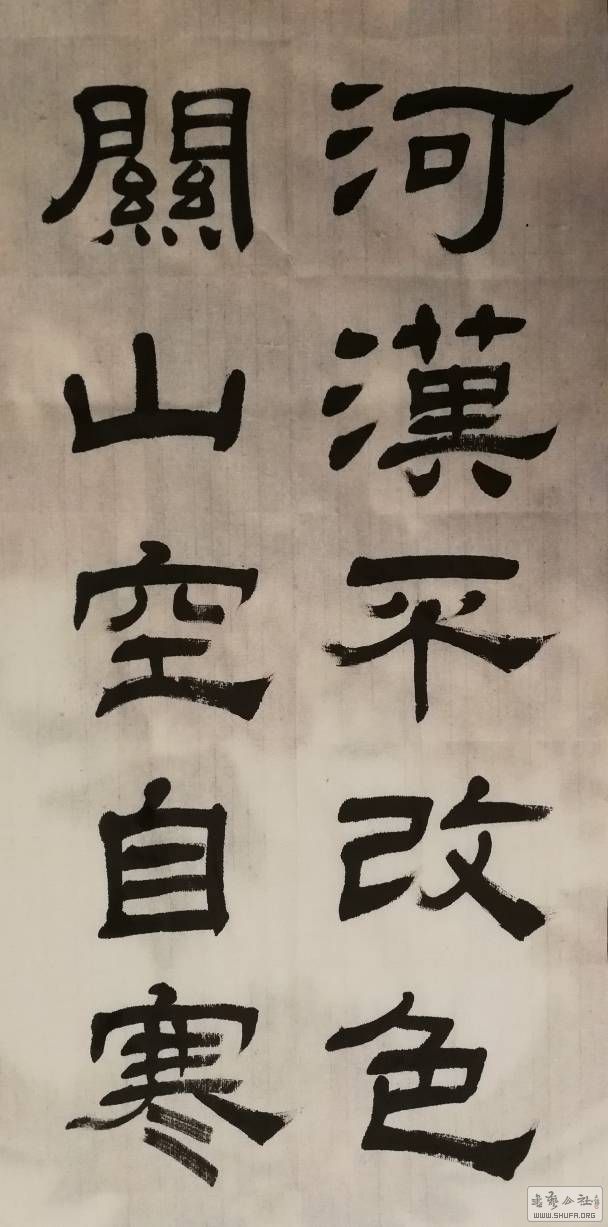 河漢不改色
關山空自寒
WWW.SHUFA.ORG